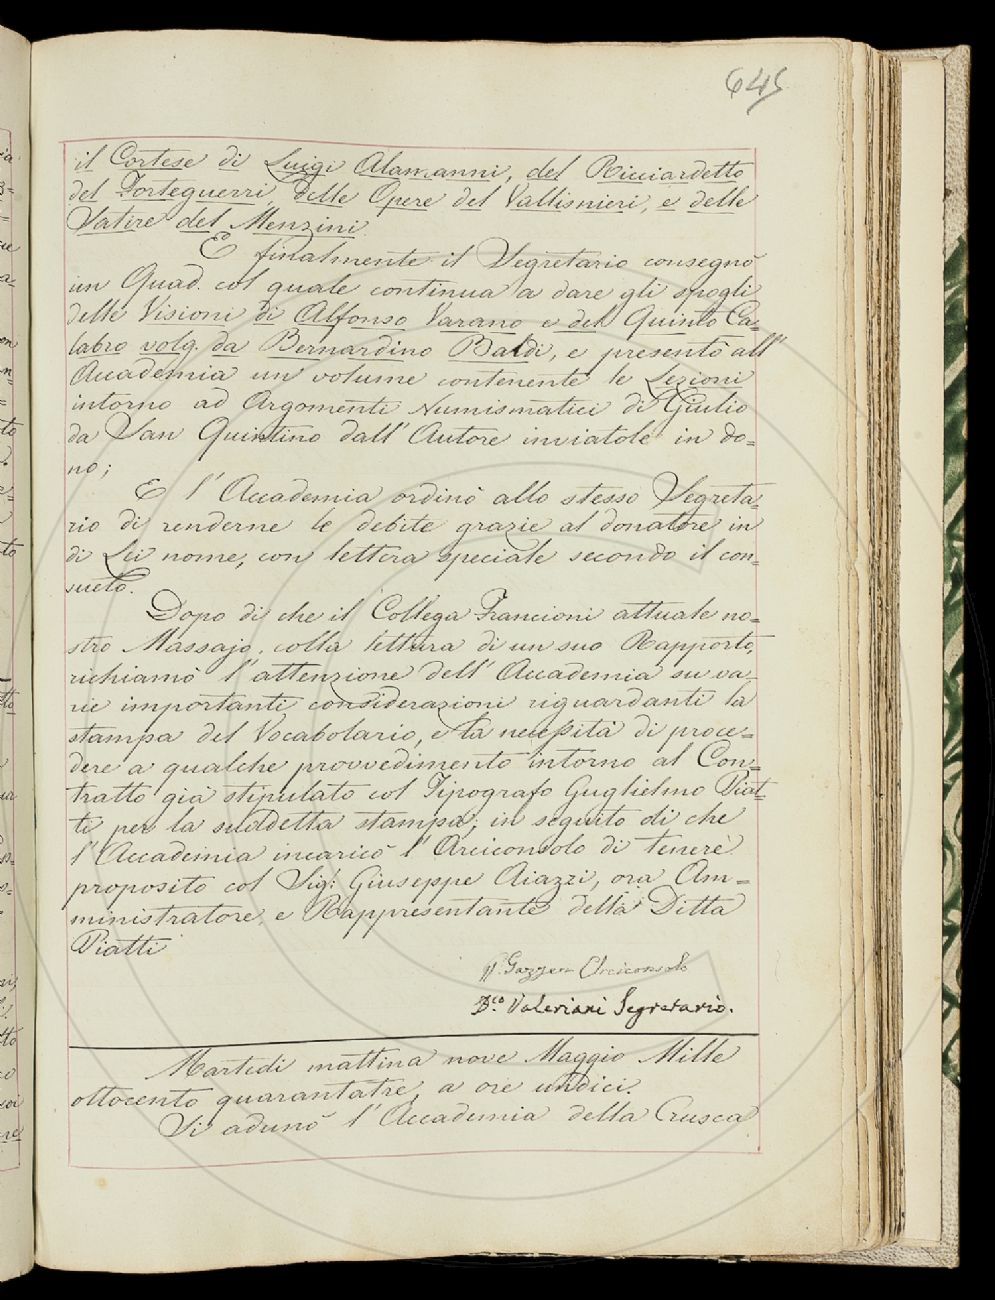 645
il Cortese di Luigi Alamanni, del Ricciardetto
del Forteguerri, delle Opere del Vallisnieri, e delle
Satire del Menzini.
E finalmente il Segretario consegnò
un Quad. col quale continua a dare gli spogli
delle Visioni di Alfonso Varano e del Quinto Ca=
labro volg. da Bernardino Baldi, e presentò all'
Accademia un volume contenente le Lezioni
intorno ad Argomenti Numismatici di Giulio
da San Quintino dall'Autore inviatole in do=
no;
E l'Accademia ordinò allo stesso Segreta=
rio di renderne le debite grazie al donatore in
di Lei nome, con lettera speciale secondo il con=
sueto.
Dopo di che il Collega Francioni attuale no=
stro Massajo, colla lettura di un suo Rapporto,
richiamò l'attenzione dell'Accademia su va=
rie importanti considerazioni riguardanti la
stampa del Vocabolario, e la necessità di proce=
dere a qualche provvedimento intorno al Con=
tratto già stipulato col Tipografo Guglielmo Piat=
ti per la suddetta stampa; in seguito di che
l'Accademia incaricò l'Arciconsolo di tenere
proposito col Sigr. Giuseppe Aiazzi, ora Am=
ministratore, e Rappresentante della Ditta
Piatti
Arciconsolo
Dco. Valeriani Segretario.
Martedì mattina nove Maggio Mille
ottocento quarantatre, a ore undici.
Si adunò l'Accademia della Crusca